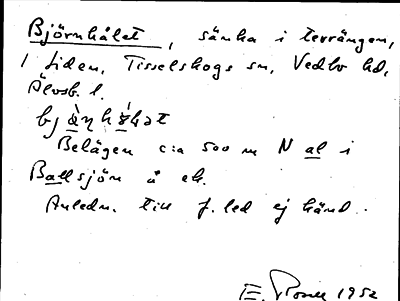 Björnhålet, sänka i terrängen,
i Liden, Tisselskogs sn, Vedbo hd,
Älvsb. l.
Belägen c:a 500 m N al i
Ballsjön å ek.
Anledn. till f. led ej känd.
E. 1952